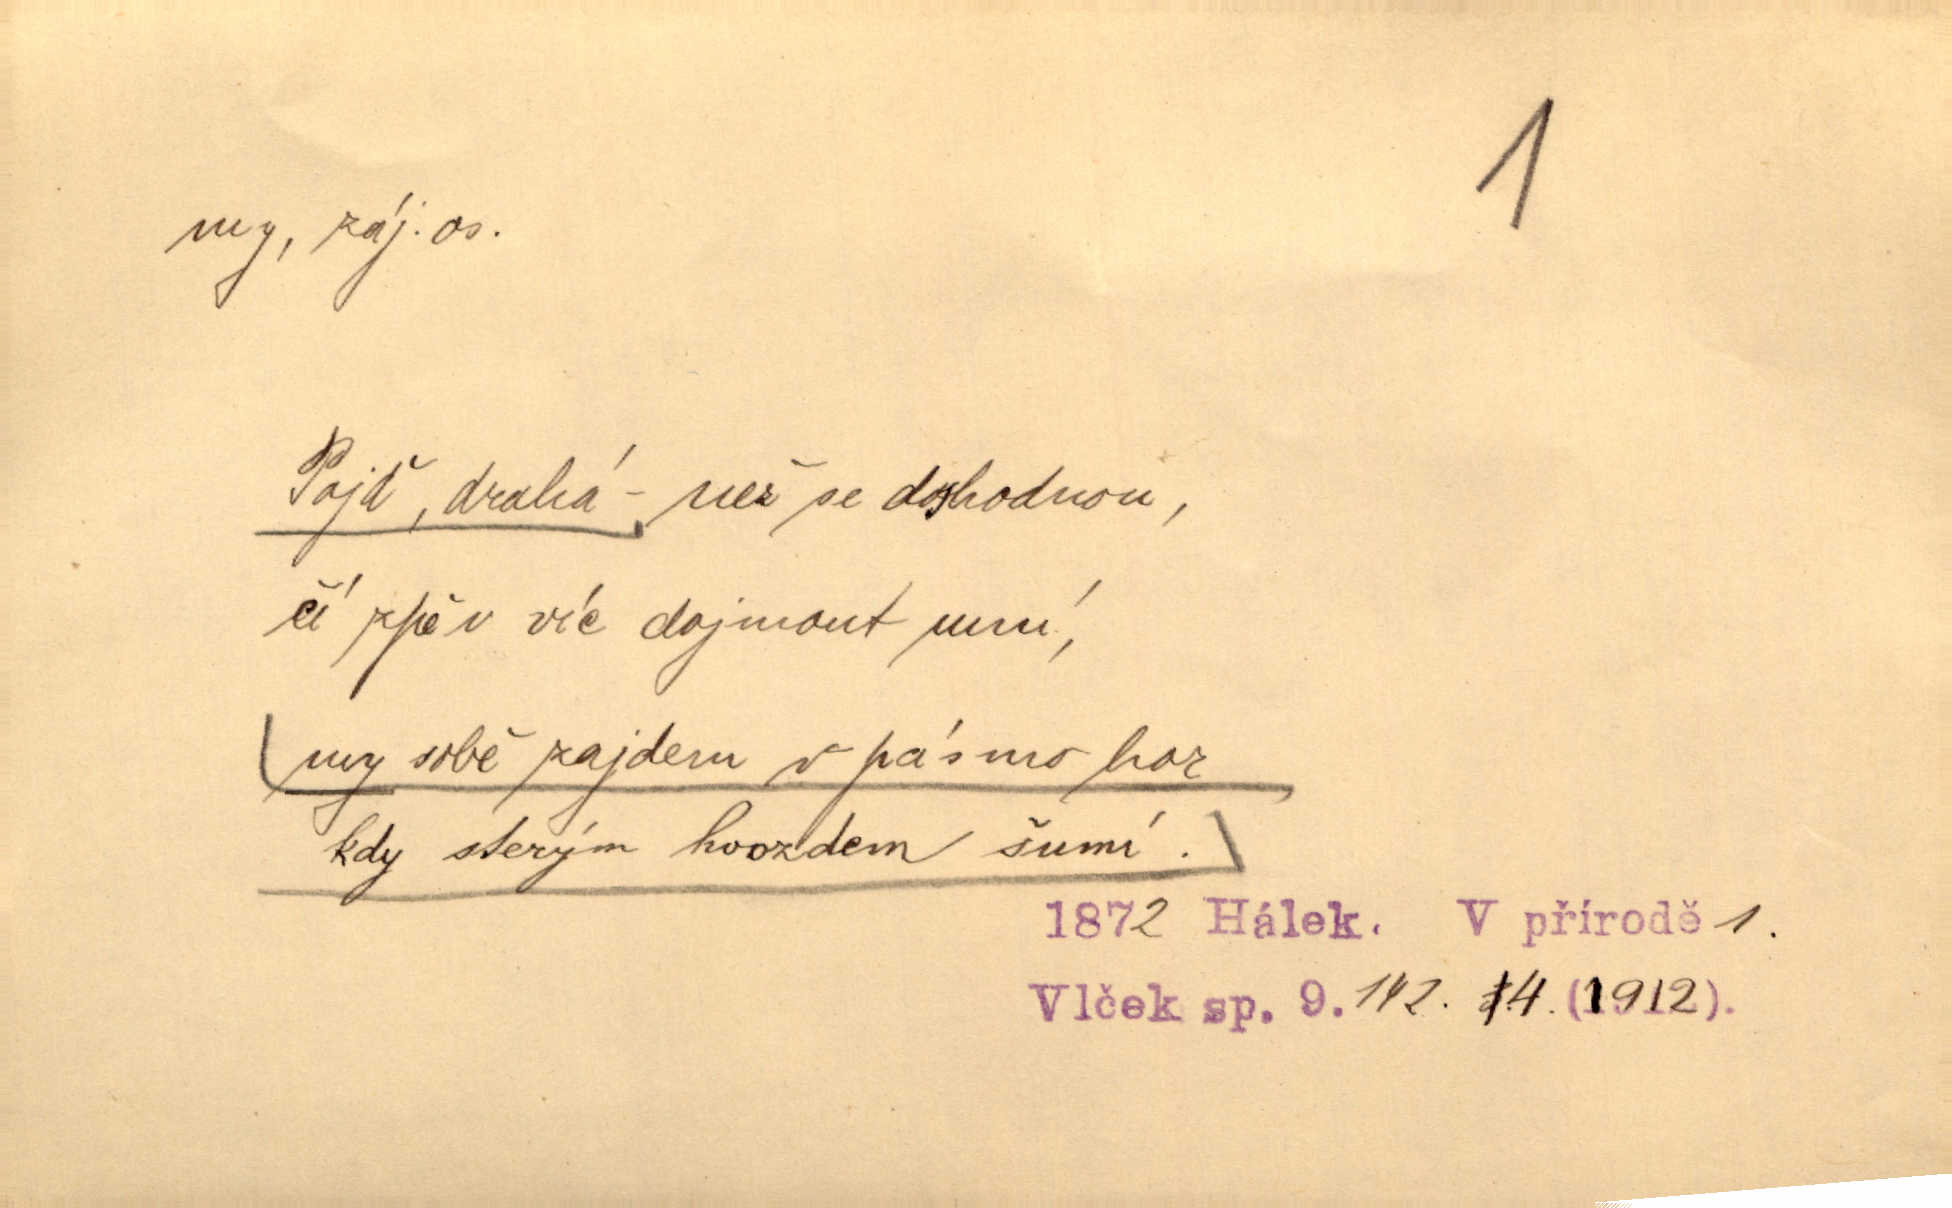 1
my, záj. os.
Pojď, drahá – než se doshodnou,
čí zpěv víc dojmout umí,
my sobě zajdem v pásmo hor
kdy sterým hvozdem šumí.
1872 Hálek. V přírodě 1.
Vlček sp. 9. 142. 4. (1912).